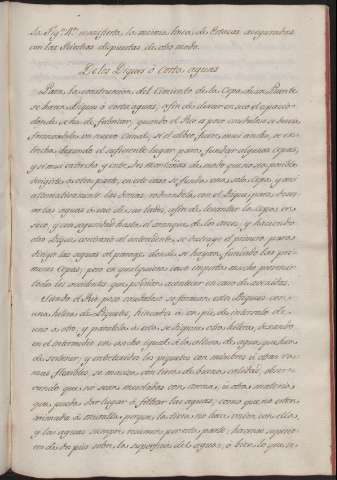 la Fig.ª 4.ª manifiesta, la misma linea de Estacas aseguradas
con las Riostras dispuestas de otro modo.
De los Diques ò Corta aguas
Para la construccion del Cimiento de la Cepa de un Puente
se haran diques ò corta aguas, afin de dexar en seco el espacio
donde se ha de fabricar, quando el Rio es poco caudaloso se desvia
formandole un nuevo Canal, si el albeo fuere mui ancho, se es-
trecha dejando el suficiente lugar para fundar algunas Cepas,
y si mui estrecho y entre dos montañas de modo que no sea posible
dirigirle à otra parte, en este caso se funda una sola Cepa, y asi
alternativamente las demas, rodeandola con el Dique para desvi-
ar las aguas à uno de sus lados, afin de levantar la Cepa en
seco, y con seguridad hasta el arranque de los arcos, y haciendo
otro Dique contrario al antecedente se destruye el primero, para
dirigir las aguas al parage donde se hayan fundado las pri-
meras Cepas; pero en qualquiera caso importa mucho precaver
todos los accidentes que pudieren acontecer en caso de avenidas.
Siendo el Rio poco caudaloso se forman estos Diques con
una hilera de Piquetes, hincados à un pie de intervalo de
uno à otro, y paralela à esta se dispone otra hilera, dexando
en el intermedio un ancho igual à la altura de agua que han
de sostener, y entretexidos los piquetes con mimbres ù otras ra-
mas flexibles, se maciza con tierra de buena calidad, obser-
vando que no sean mezclados con arena, ù otra materia
que pueda dar lugar à filtrar las aguas, como que no estè
arrimada à
porque la tierra no hace union con ella,
y las aguas siempre rezuman por esta parte; haranse superio-
res de un pie sobre la superficie del agua, ò bien lo que se